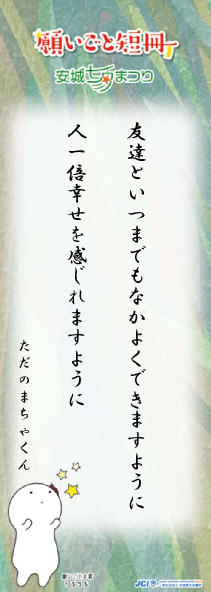 願いごと短冊
安城七夕まつり
友達といつまでもなかよくできますように
人一倍幸せを感じれますように
ただのまちゃくん
JCI